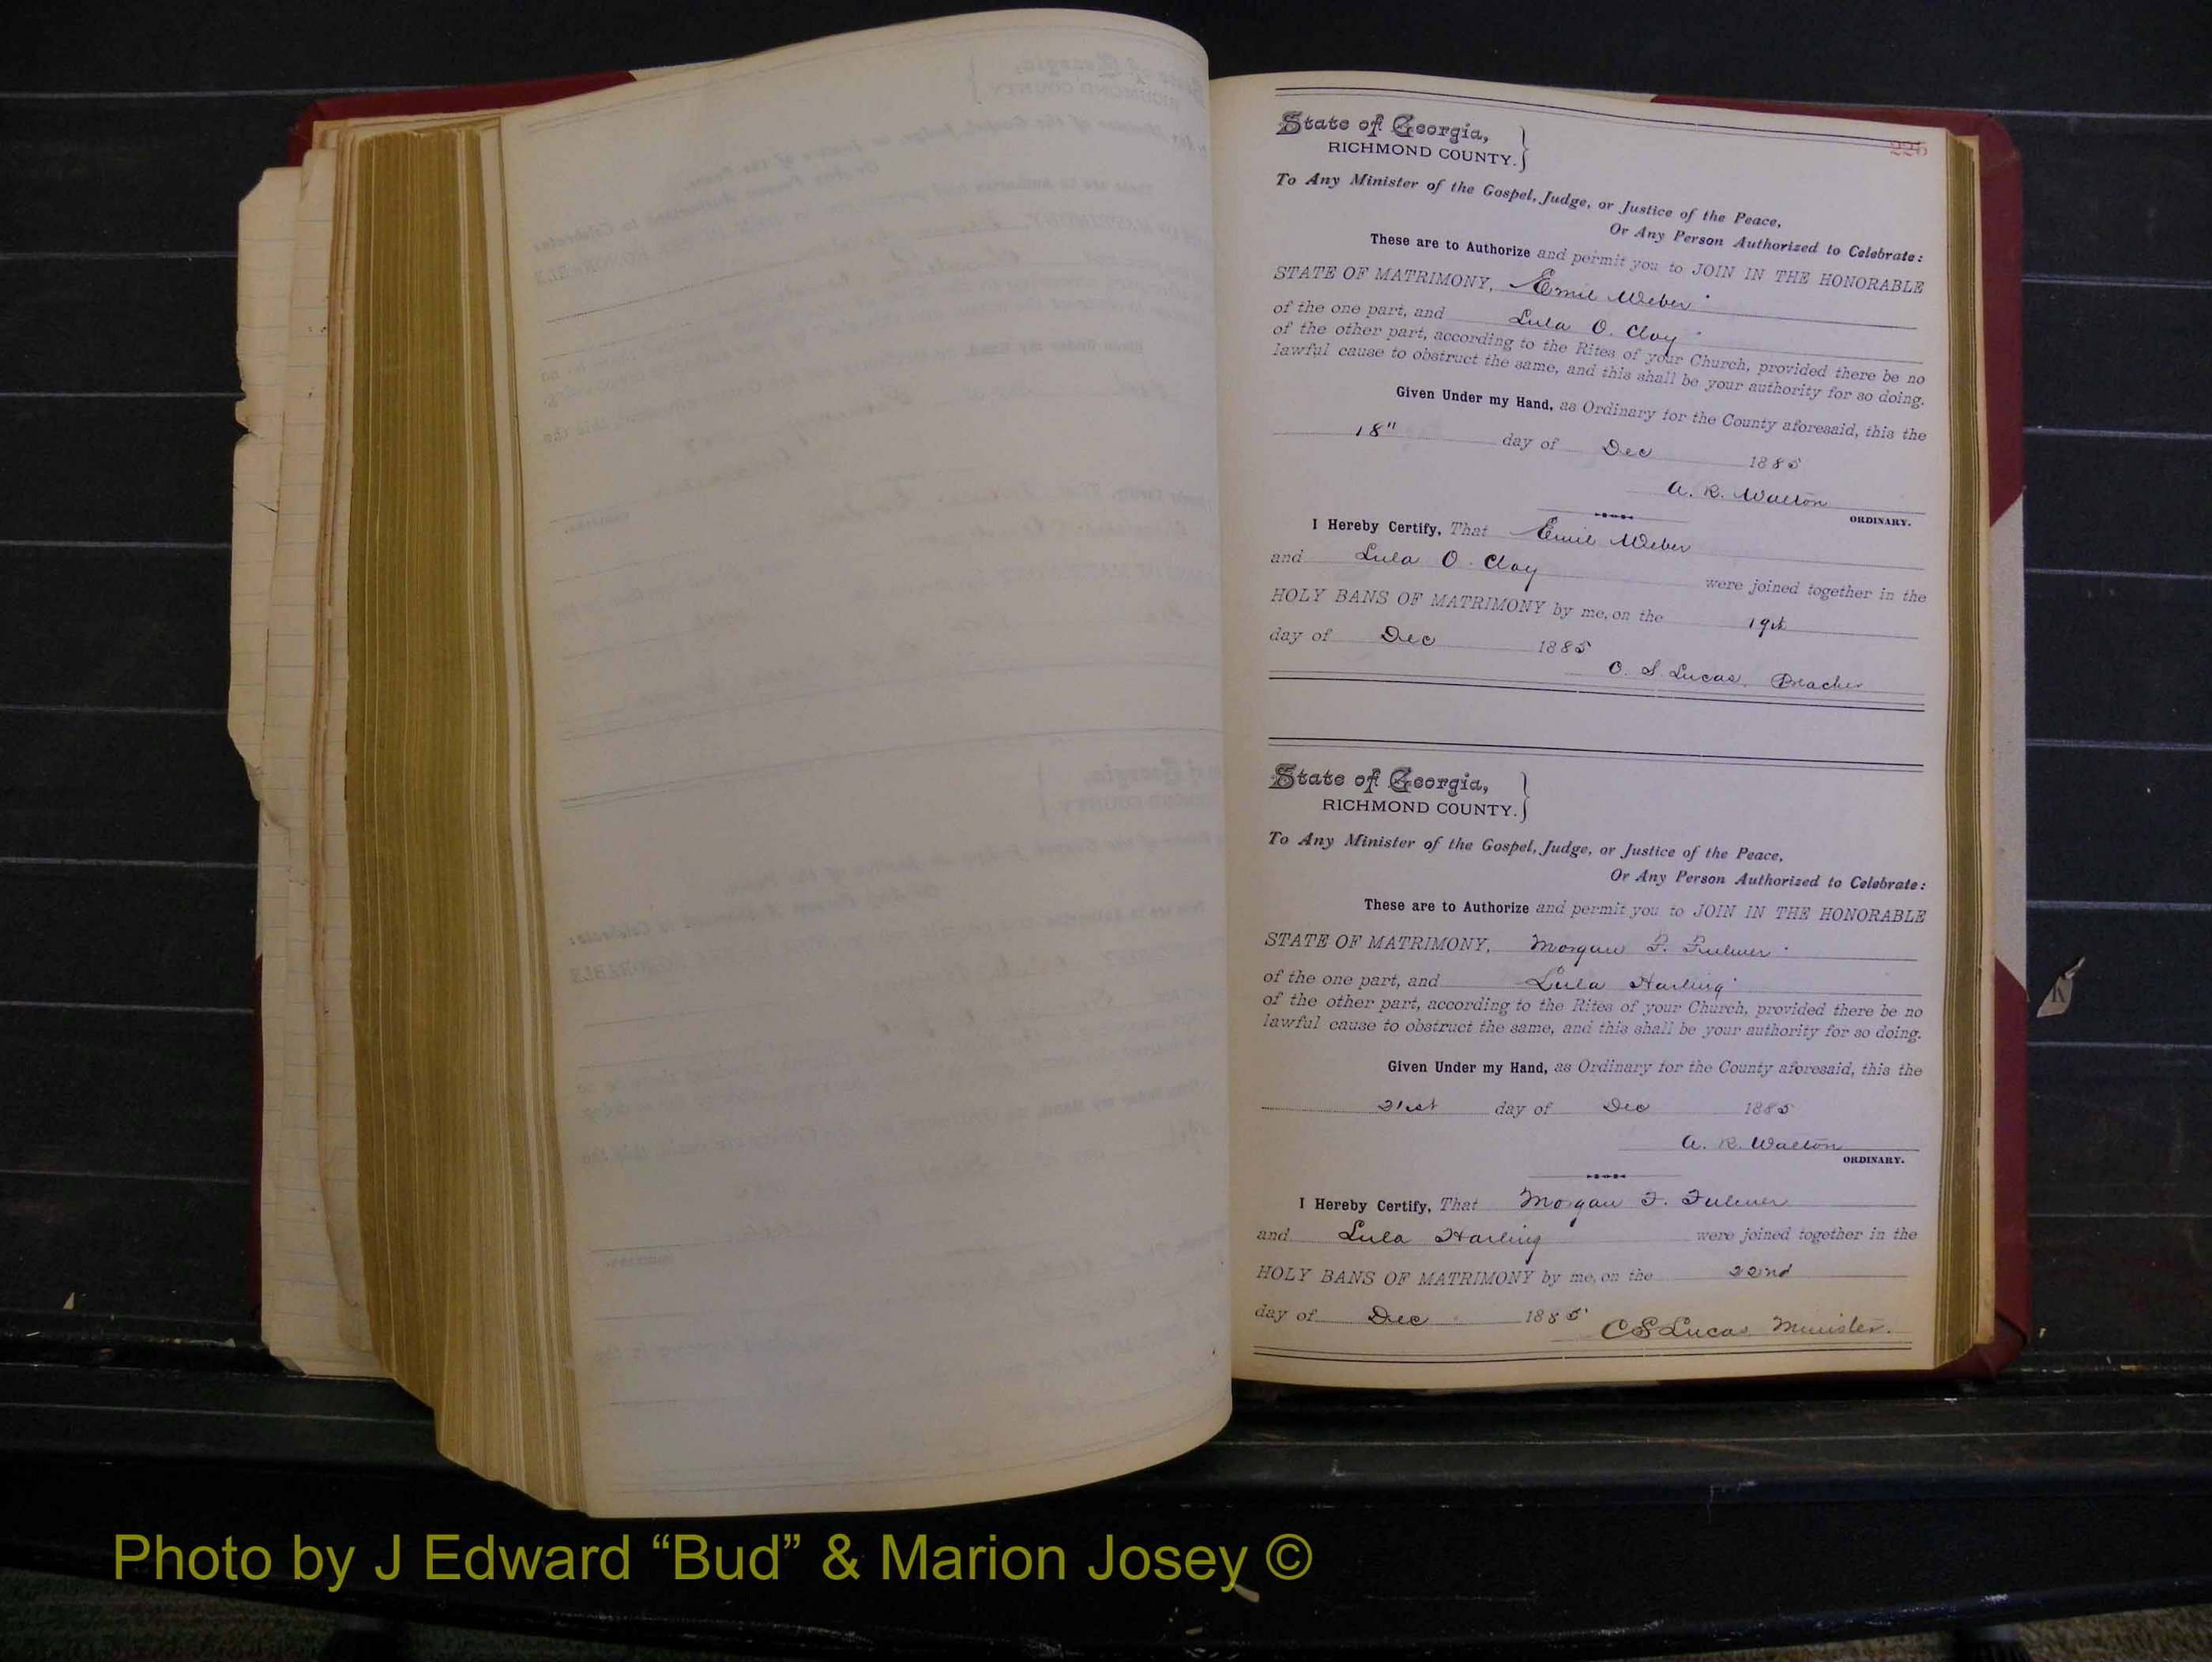 225
State of Georgia,
RICHMOND COUNTY.
To Any Minister of the Gospel, Judge, or Justice of the Peace,
Or Any Person Authorized to Celebrate:
These are to Authorize and permit you to JOIN IN THE HONORABLE
STATE OF MATRIMONY, Emil Weber
of the one part, and Lula O. Clay
of the other part, according to the Rites of your Church, provided there be no
lawful cause to obstruct the same, and this shall be your authority for so doing.
Given Under my Hand, as Ordinary for the County aforesaid, this the
18" day of Dec 1885
A. R. Walton
ORDINARY.
I Hereby Certify, That Emil Weber
and Lula O. Clay were joined together in the
HOLY BANS OF MATRIMONY by me, on the 19th
day of Dec 1885
C. S. Lucas, Preacher
State of Georgia,
RICHMOND COUNTY.
To Any Minister of the Gospel, Judge, or Justice of the Peace,
Or Any Person Authorized to Celebrate:
These are to Authorize and permit you to JOIN IN THE HONORABLE
STATE OF MATRIMONY, Morgan F. Fulmer
of the one part, and Lula Harling
of the other part, according to the Rites of your Church, provided there be no
lawful cause to obstruct the same, and this shall be your authority for so doing.
Given Under my Hand, as Ordinary for the County aforesaid, this the
21st day of Dec 1885
A. R. Walton
ORDINARY.
I Hereby Certify, That Morgan F. Fulmer
and Lula Harling were joined together in the
HOLY BANS OF MATRIMONY by me, on the 22nd
day of Dec 1885
C S Lucas Minister.
Photo by J Edward “Bud” & Marion Josey ©